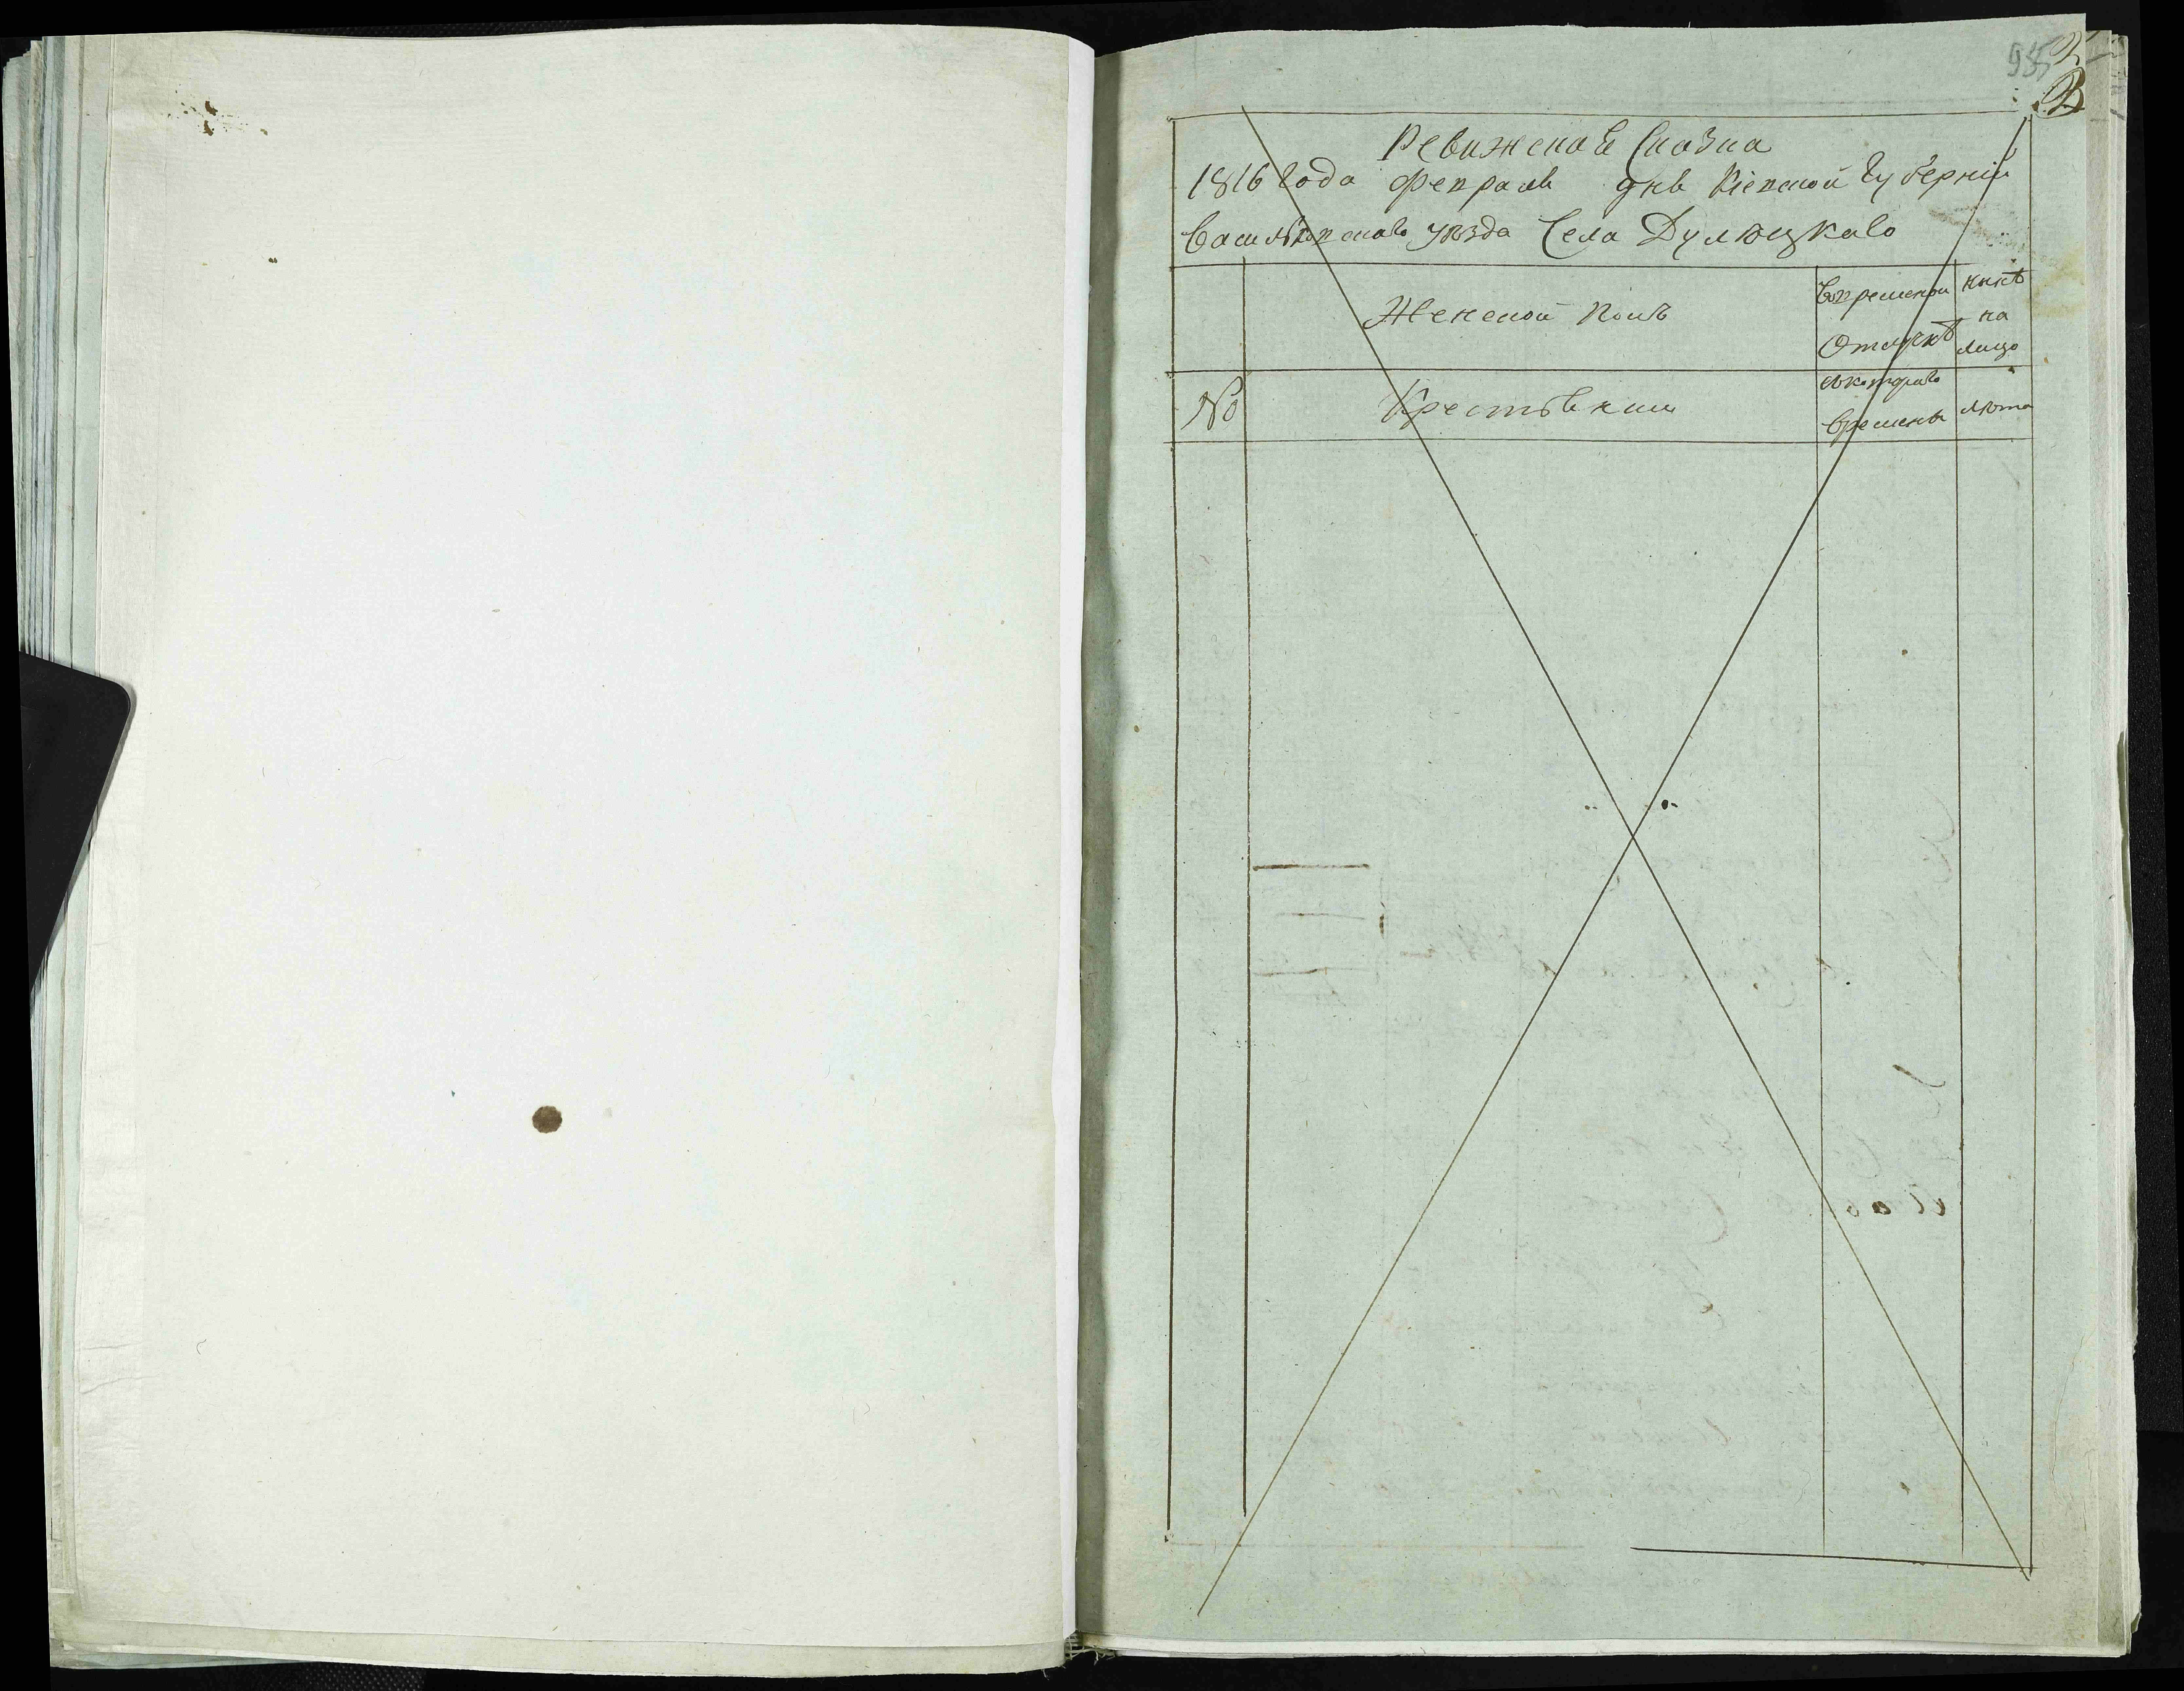 935
Ревижская Сказка
1816 года февраля дня Кіевской Губерніи
Васильковскаго уезда Села Дулюцкаго
Женской полъ
Вовременной
Отлучкѣ
нынѣ
на
лицо
№
Крестьянки
съкотораго
времены
лѣта